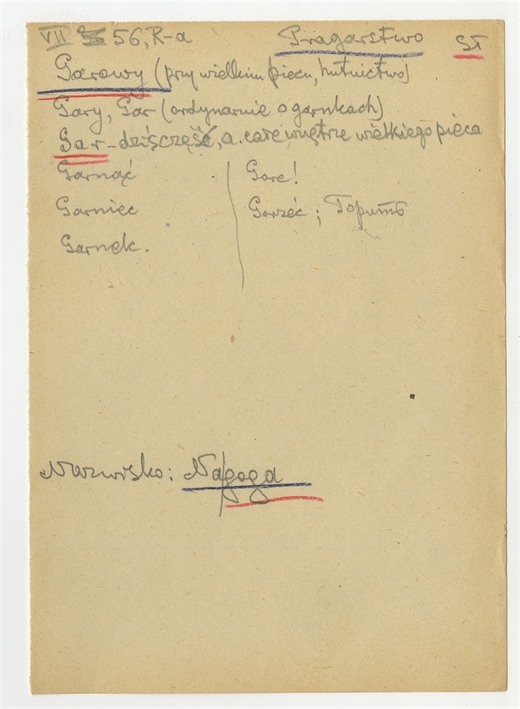 VII 56, R-a Pragarstwo St
Garowy (przy wielkim piecu, hutnictwo)
Gary, Gar (ordynarnie o garnkach)
Gar - dziś część, a całe wnętrze wielkiego pieca
Garnąć Gore!
Garniec Gorzeć;
Garnek.
Nazwisko: Nagoga